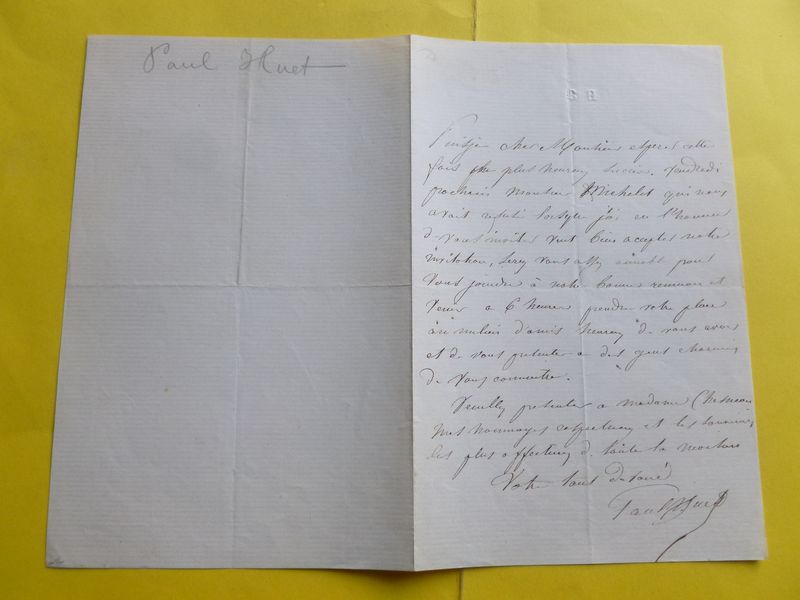 Paul Huet
Puis je cher Monsieur espérer cette
fois plus heureux succès. Vendredi
prochain Monsieur Michelet qui nous
avait refusé lorsque j'ai eu l'honneur
de vous inviter veut bien accepter notre
invitation, serez vous assez aimable pour
vous joindre à notre bonne reunion et
venir a 6 heures prendre votre place
au milieu d'amis heureux de vous avoir
et de vous presenter a des gens charmés
de vous connaitre.
Veuillez presenter a madame Chesneau
mes hommages respectueux et les souvenirs
les plus affectueux de toute la
Votre tout dévoué
Paul Huet